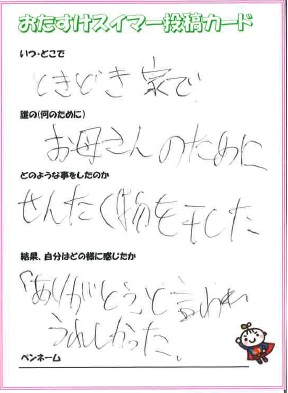 おたすけスイマー投稿カード
いつ・どこで
ときどき家で
誰の(何のために)
お母さんのために
どのような事をしたのか
せんたく物を干した
結果、自分はどの様に感じたか
「ありがとう」と言われ
うれしかった。
ペンネーム